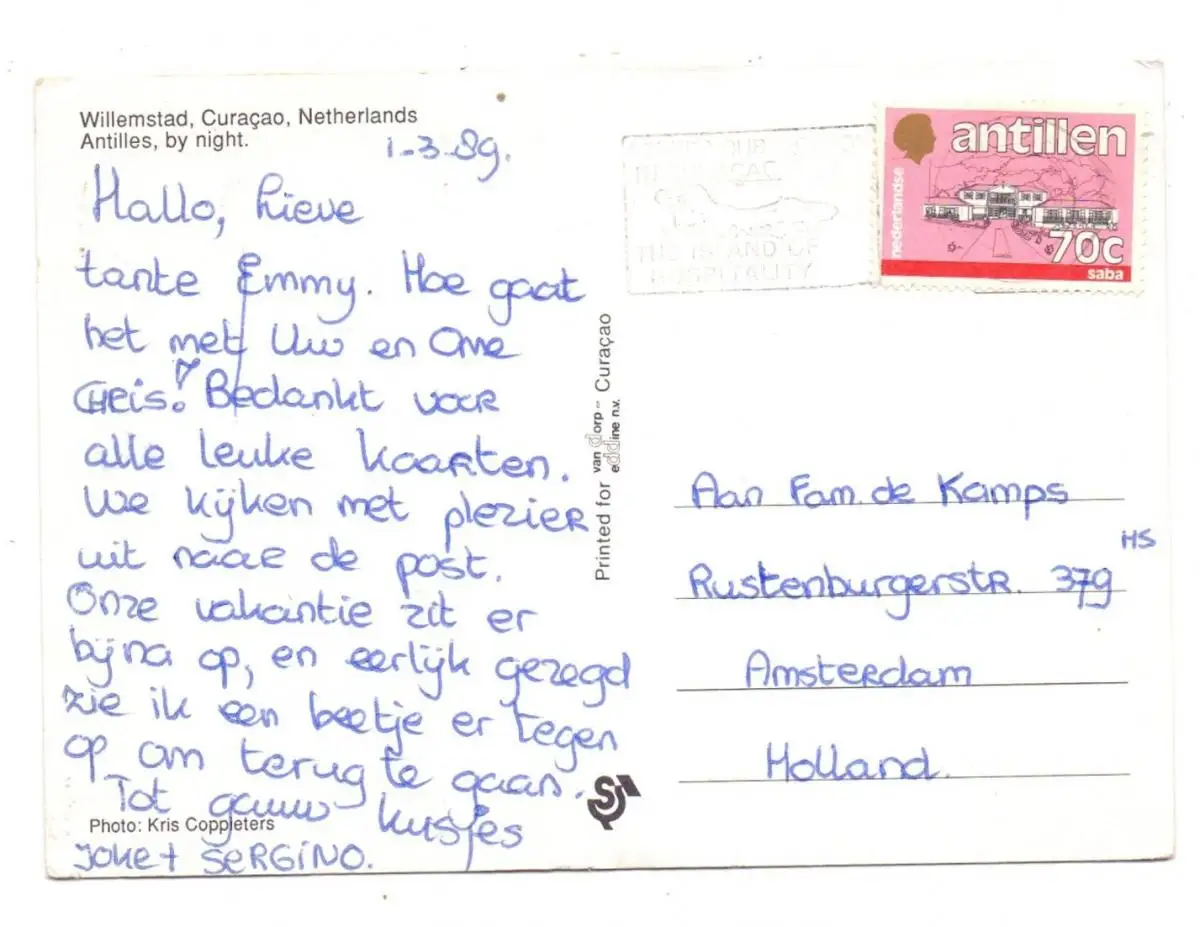 Willemstad, Curaçao, Netherlands
Antilles, by night.
1-3-89.
Hallo, Lieve
tante Emmy. Hoe gaat
het met Uw en Ome
CHRis! Bedankt vooR
alle leuke kaaRten.
We kijken met plezieR
uit naaR de post.
Onze vakantie zit er
bijna op, en eerlijk gezegd
zie ik een beetje er tegen
op om terug te gaan.
Tot gauw kusjes
Photo: Kris Coppieters
Joke + SERGINO.
Printed for van dorp - eddine n.v. Curaçao
SJ
THE ISLAND OF
HOSPITALITY
nederlandse
antillen
70c
saba
Aan Fam. de Kamps
HS
RustenburgerstR. 379
AmsteRdam
Holland.